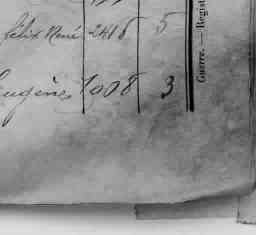 Félix René 2416 5
Eugène 1908 3
Guerre. — Regist